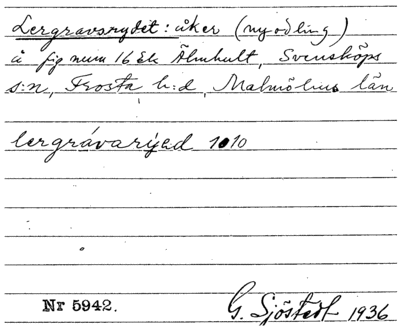 Lergravsrydet: åker (nyodling)
å fig num 16 Ek Älmhult, Svensköps
s:n, Frosta h:d, Malmöhus län
lergrávarýed 1010
Nr 5942.
G. Sjöstedt 1936